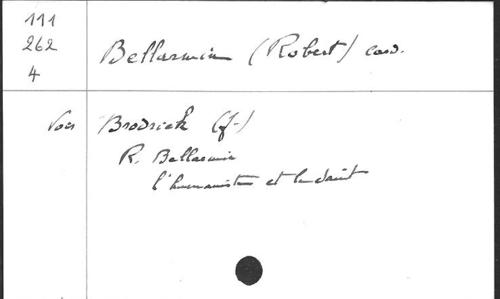 111
262
4
Bellarmin (Robert) card.
Voir Brodrick (J-)
R. Bellarmin
l'humaniste et le saint